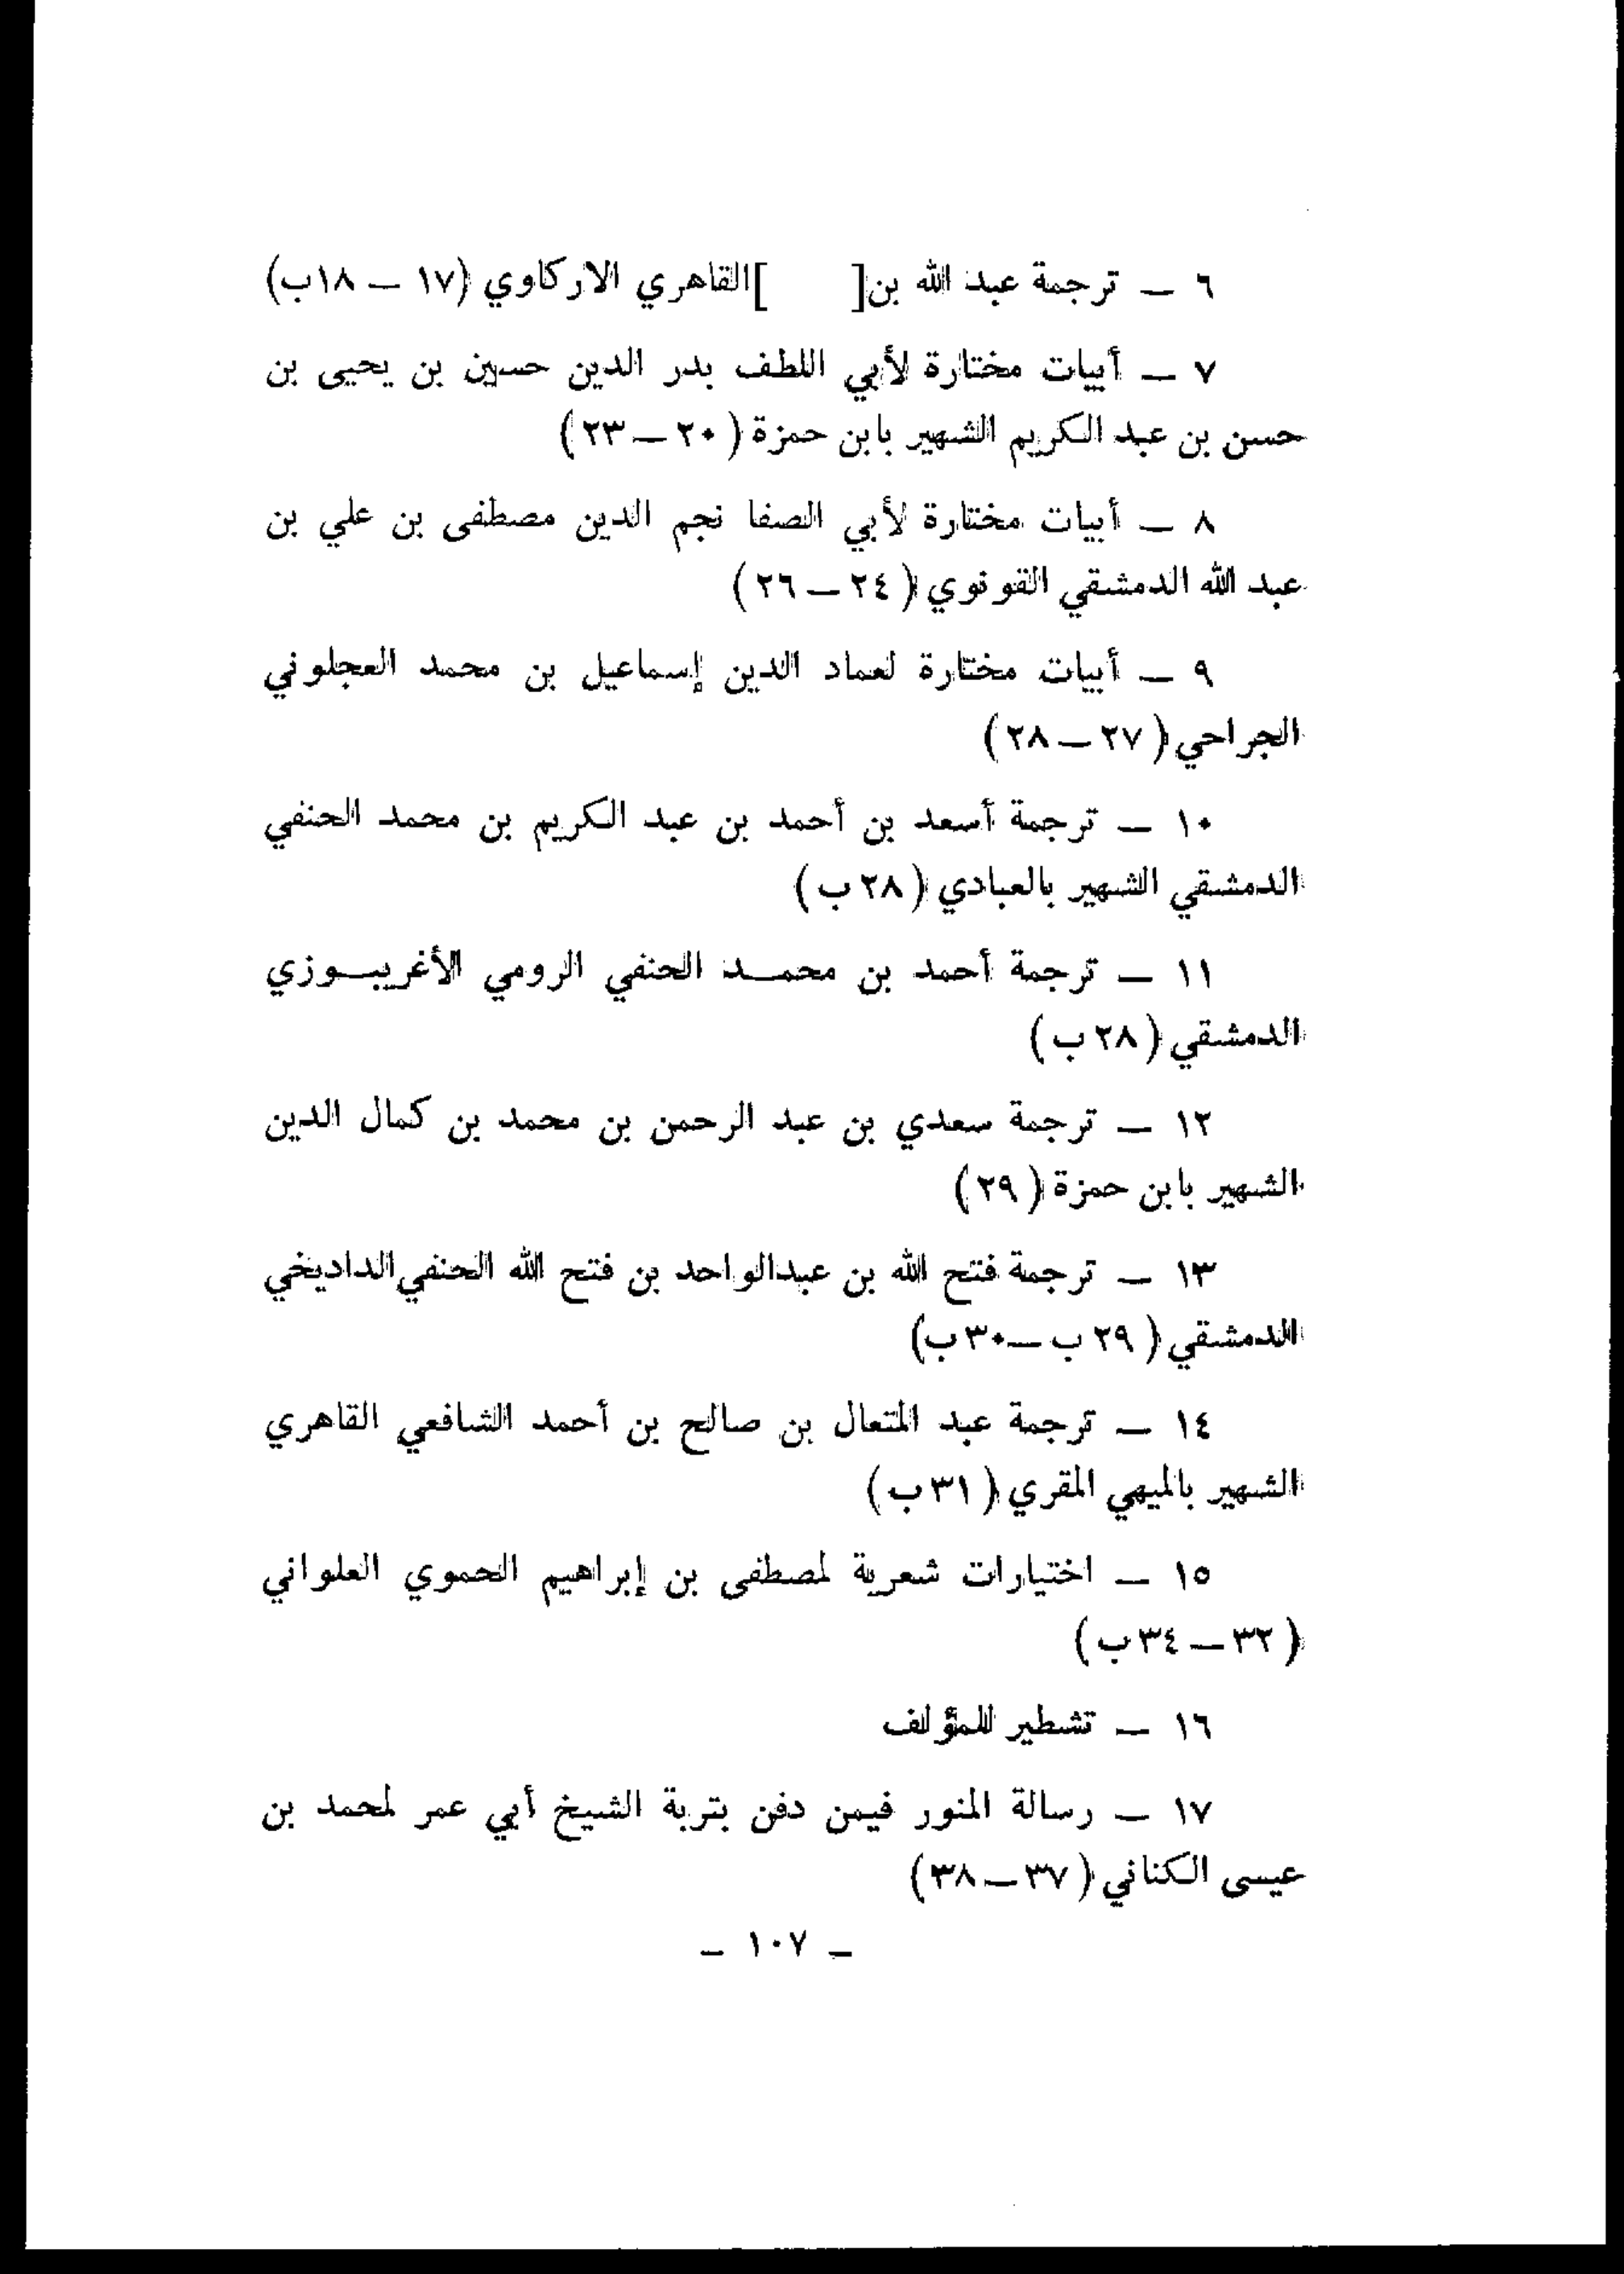 ٦ — ترجمة عبد الله بن[ ]القاهري الاركاوي (١٧ — ١٨ب)
٧ — أبيات مختارة لأبي اللطف بدر الدين حسين بن يحيى بن
حسن بن عبد الكريم الشهير بابن حمزة (٢٠ — ٢٣)
٨ — أبيات مختارة لأبي الصفا نجم الدين مصطفى بن علي بن
عبد الله الدمشقي القونوي (٢٤ — ٢٦)
٩ — أبيات مختارة لعماد الدين إسماعيل بن محمد العجلوني
الجراحي (٢٧ — ٢٨)
١٠ — ترجمة أسعد بن أحمد بن عبد الكريم بن محمد الحنفي
الدمشقي الشهير بالعبادي (٢٨ب)
١١ — ترجمة أحمد بن محمـد الحنفي الرومي الأغريبـوزي
الدمشقي (٢٨ب)
١٢ — ترجمة سعدي بن عبد الرحمن بن محمد بن كمال الدين
الشهير بابن حمزة (٢٩)
١٣ — ترجمة فتح الله بن عبدالواحد بن فتح الله الحنفي الداديخي
الدمشقي (٢٩ب — ٣٠ب)
١٤ — ترجمة عبد المتعال بن صالح بن أحمد الشافعي القاهري
الشهير بالميهي المقري (٣١ب)
١٥ — اختيارات شعرية لمصطفى بن إبراهيم الحموي العلواني
(٣٢ — ٣٤ب)
١٦ — تشطير للمؤلف
١٧ — رسالة المنور فيمن دفن بتربة الشيخ أبي عمر لمحمد بن
عيسى الكناني (٣٧ — ٣٨)
– ١٠٧ –